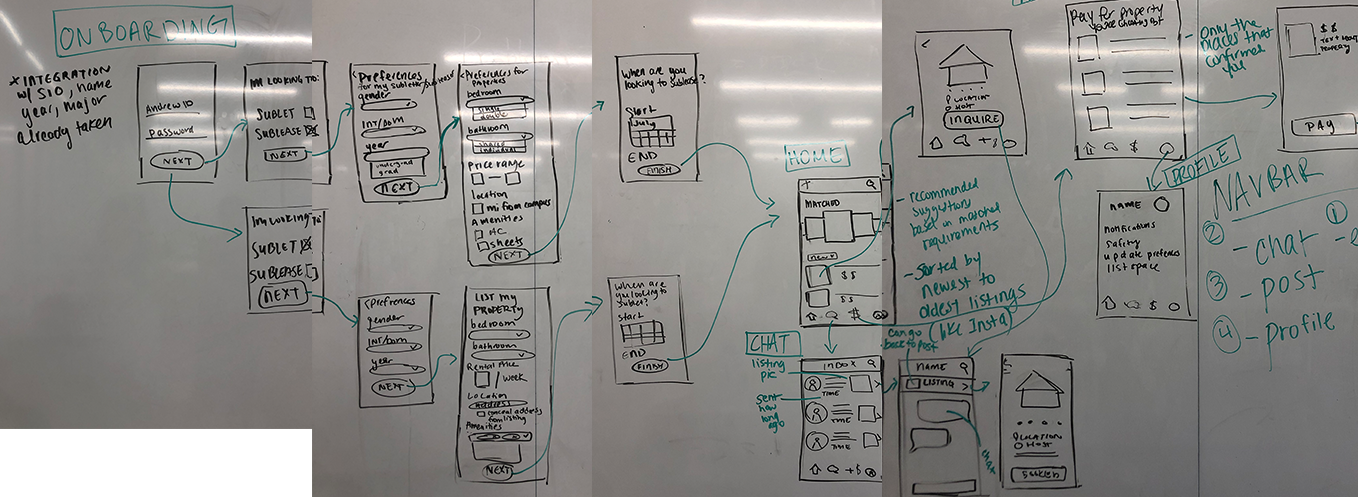 ONBOARDING
*INTEGRATION
w/ SIO, name
year, major
already taken
Andrew ID
Password
NEXT
IM LOOKING TO:
SUBLET
SUBLEASE
NEXT
Im LOOKING TO:
SUBLET
SUBLEASE
NEXT
<Preferences
for my subletter/sublease
gender
Int/Dom
year
undergrad
grad
NEXT
<Preferences for
Properties
bedroom
single
double
bathroom
shared
individual
Price range
location
mi from campus
Amenities
AC
sheets
NEXT
<Prefrences
gender
Int/Dom
year
NEXT
LIST my
PROPERTY
bedroom
bathroom
Rental Price
/ week
Location
Address
conceal address
from listing
Amenities
NEXT
When are you
looking to sublease?
Start
July
END
FINISH
When are
you looking to
sublet?
Start
END
FINISH
HOME
+
MATCHED
news
$$
$$
$
- recommended
suggestions
based on matched
requirements
- Sorted by
newest to
oldest listings
(like Insta)
CHAT
listing
pic
sent
how
long
ago
INBOX
TIME
TIME
TIME
+$
can go
back to post
NAME
LISTING >
LOCATION
HOST
<
LOCATION
HOST
INQUIRE
+$
Pay for Property
$
- Only the
places that
confirmed
you
$$
property
PAY
PROFILE
NAME
notifications
safety
update prefences
list space
$
NAVBAR
①
② - chat
③ - post
④ - profile